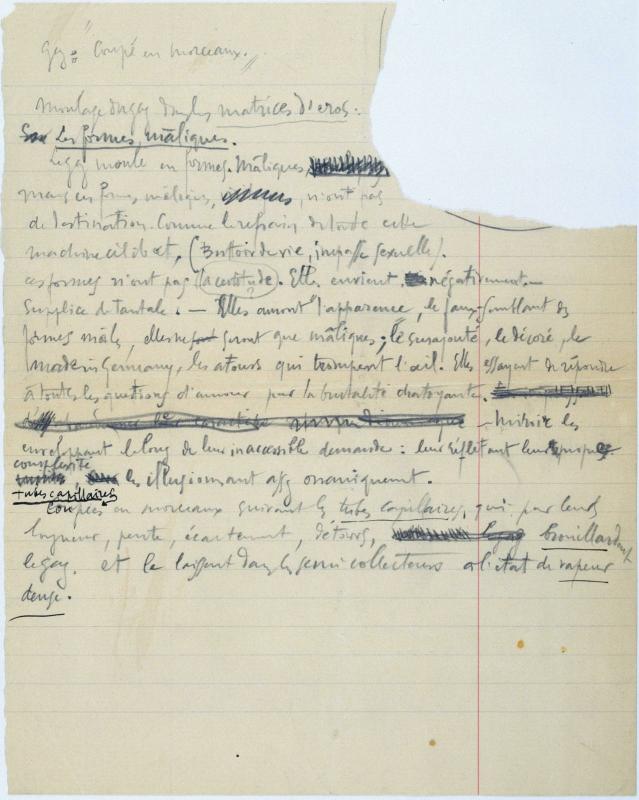 Gaz = "Coupé en morceaux."
Moulage du gaz dans les matrices d'eros.
Les formes, mâliques.
Le gaz moulé en formes. Mâliques,
mais ces formes, mâliques, n'ont pas
de destination. Comme le refrain de toute cette
machine célibat, (Buttoir de vie, impasse sexuelle).
ces formes n'ont pas (la certitude). Elles envient négativement.—
Supplice de tantale. — Elles auront l'apparence, le faux-semblant des
formes mâles, elles ne seront que mâliques; le surajouté, le décoré, le
made in Germany, les atours qui trompent l'œil. Elles essayent de répondre
à toutes les questions d'amour par la brutalité chatoyante.
— miroir les
enveloppant le long de leur inaccessible demande : leur reflétant leur propre
complexité
les illusionnant assez onaniquement.
tubes capillaires
Coupées en morceaux suivant les tubes capillaires, qui, par leurs
longueur, pente, écartement, détours, brouillardant
le gaz. et le laissent dans les semi collecteurs à l'état de vapeur
dense.